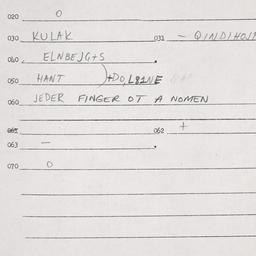 020 O
030 KULAK 031 –
040 ELNBEJG+S
050 HANT
060 JEDER FINGER OT A NOMEN
061 062 +
063 –
070 O